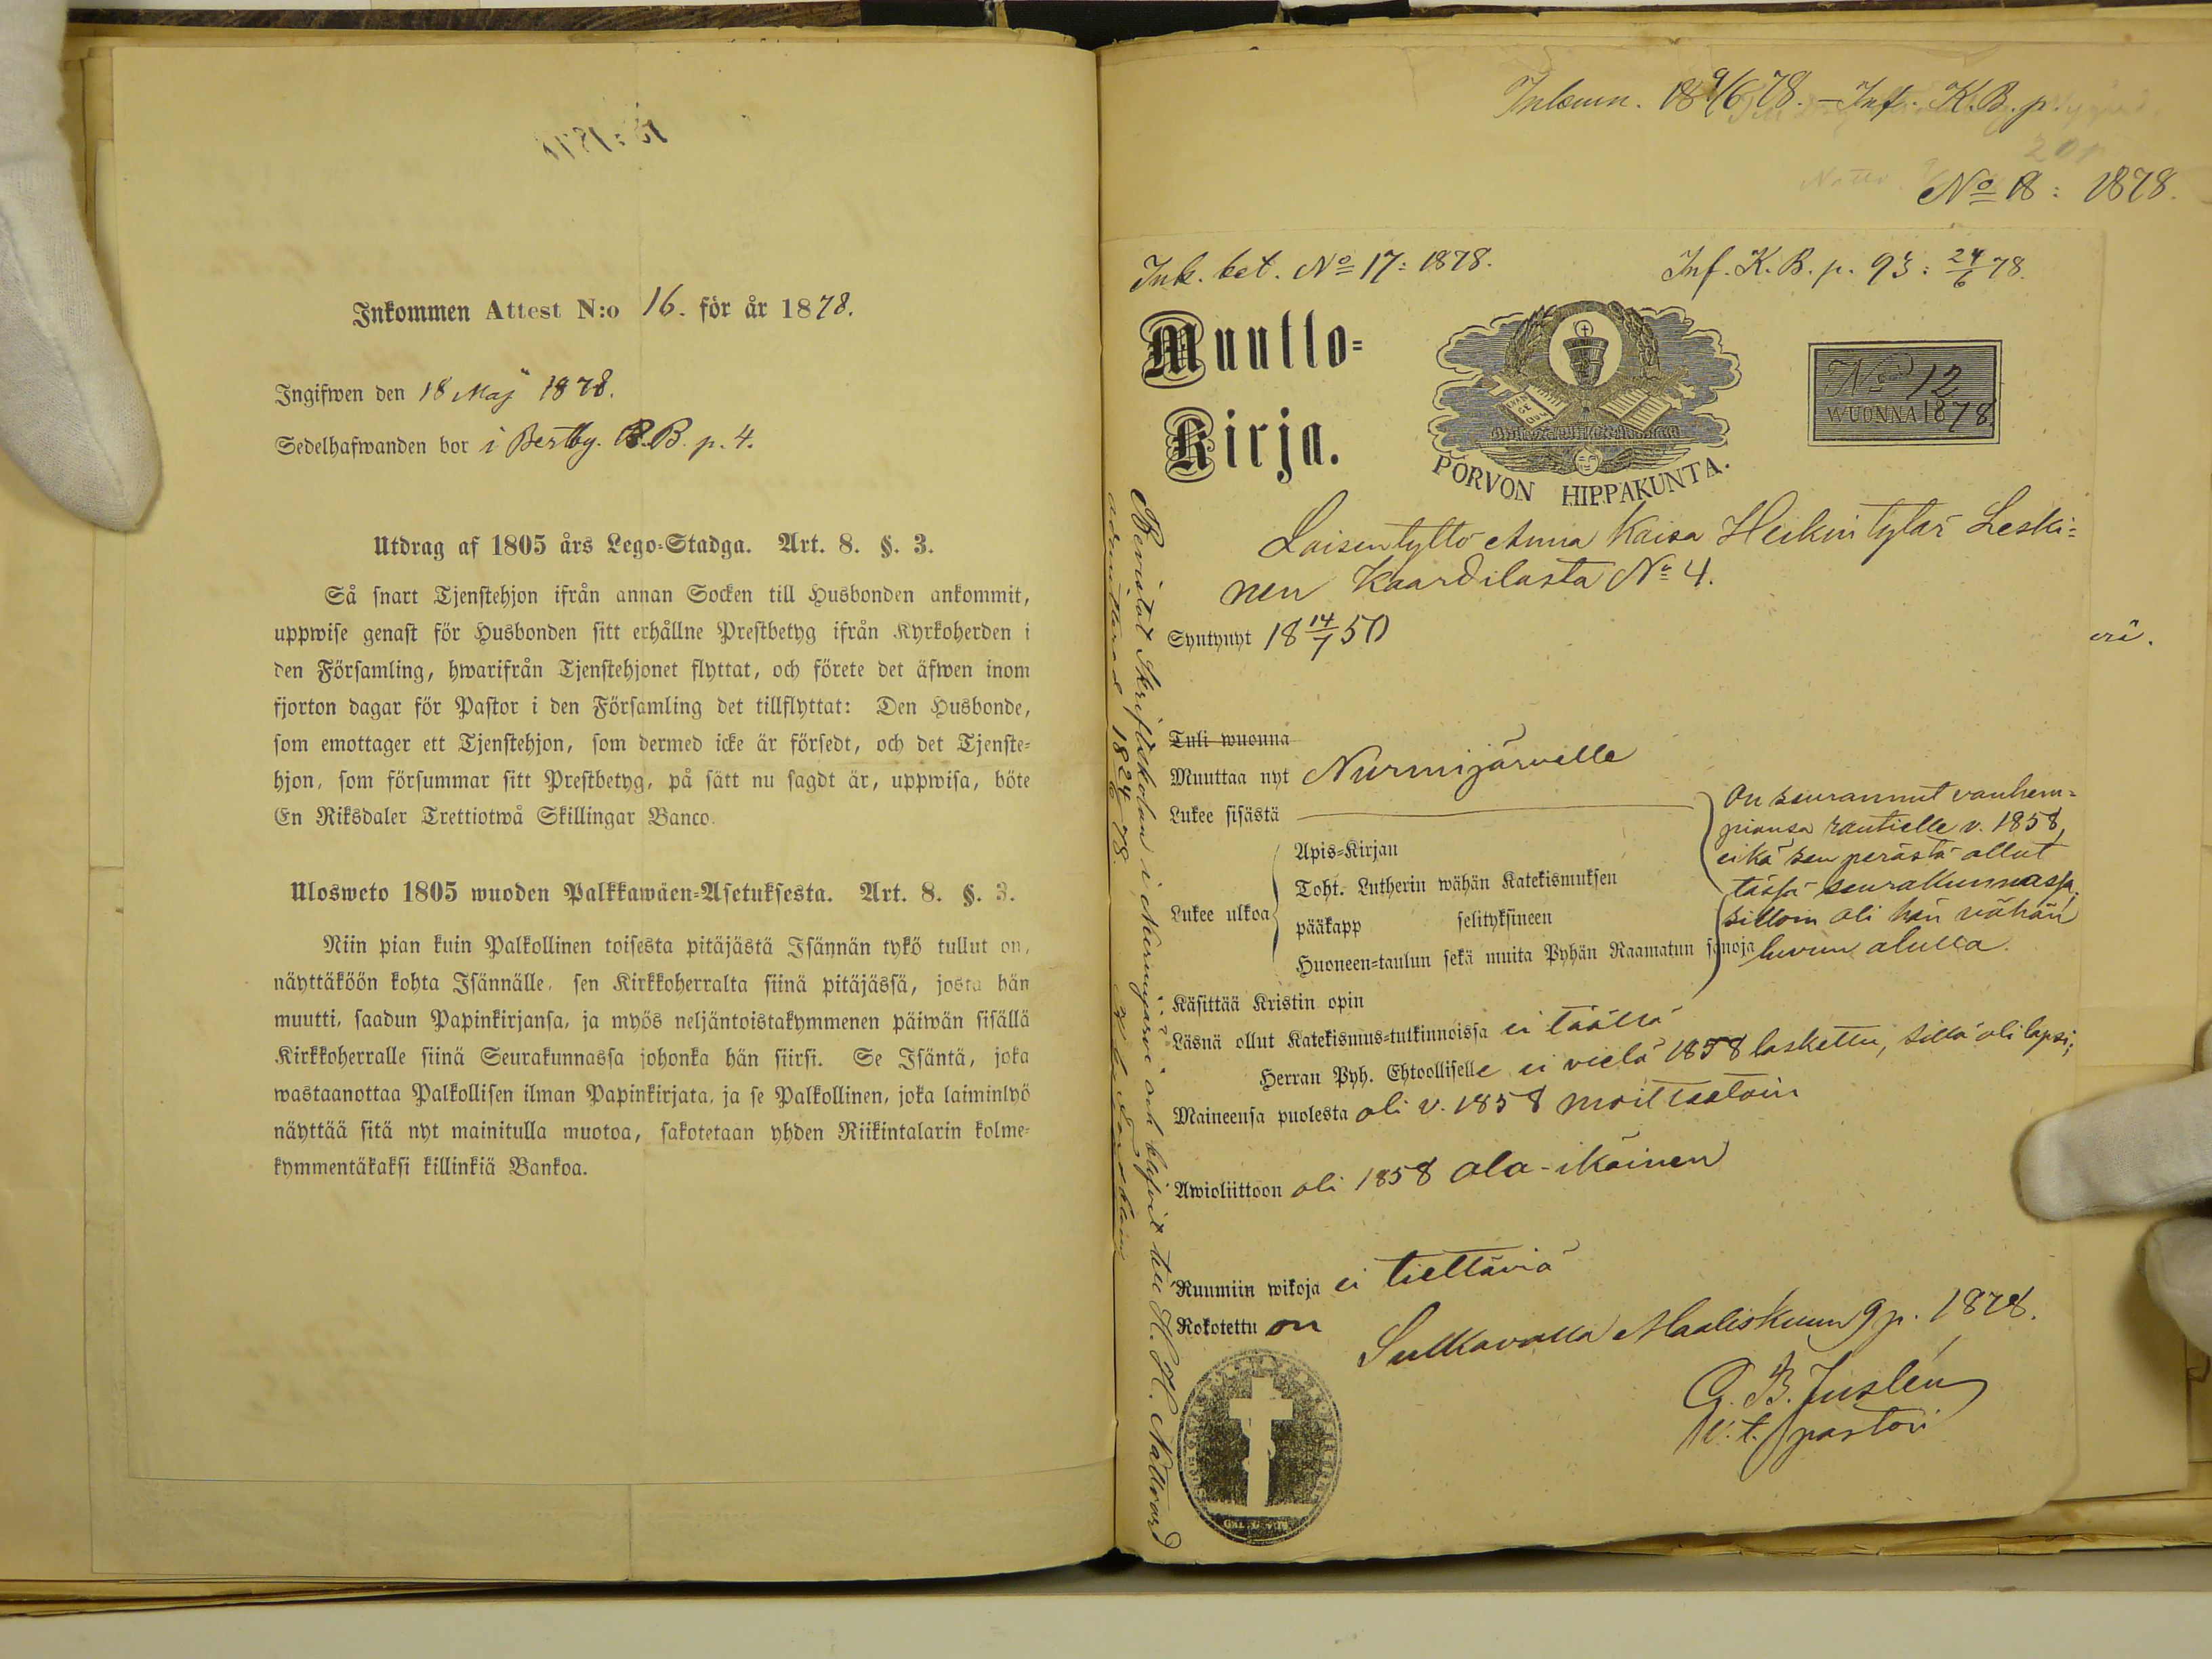 Inkommen Attest N:o 16. för år 1878.
Ingifwen den 18 Maj 1878.
Sedelhafwanden bor i Bertby. B.B. p. 4.
Utdrag af 1805 års Lego-Stadga. Art. 8. §. 3.
Så snart Tjenstehjon ifrån annan Socken till Husbonden ankommit,
uppwise genast för Husbonden sitt erhållne Prestbetyg ifrån Kyrkoherden i
den Församling, hwarifrån Tjenstehjonet flyttat, och förete det äfwen inom
fjorton dagar för Pastor i den Församling det tillflyttat: Den Husbonde,
som emottager ett Tjenstehjon, som dermed icke är försedt, och det Tjenste-
hjon, som försummar sitt Prestbetyg, på sätt nu sagdt är, uppwisa, böte
En Riksdaler Trettiotwå Skillingar Banco.
Ulosweto 1805 wuoden Palkkawäen-Asetuksesta. Art. 8. §. 3.
Niin pian kuin Palkollinen toisesta pitäjästä Isännän tykö tullut on,
näyttäköön kohta Isännälle, sen Kirkkoherralta siinä pitäjässä, josta hän
muutti, saadun Papinkirjansa, ja myös neljäntoistakymmenen päiwän sisällä
Kirkkoherralle siinä Seurakunnassa johonka hän siirsi. Se Isäntä, joka
wastaanottaa Palkollisen ilman Papinkirjata, ja se Palkollinen, joka laiminlyö
näyttää sitä nyt mainitulla muotoa, sakotetaan yhden Riikintalarin kolme-
kymmentäkaksi killinkiä Bankoa.
Inlemn. 18 9/6 78. - Inf. K.B. p.
No 18: 1878.
Ink. bet. No 17: 1878.
Inf. K.B. p. 93: 24/6 78.
Muutto-
Kirja.
PORVON HIPPAKUNTA.
No 12
WUONNA 1878.
Loisentyttö Anna Kaisa Heikintytär Leski-
nen Kaartilasta No 4.
Syntynyt 18 14/7 50
Tuli wuonna
Muuttaa nyt Nurmijärvelle
Lukee sisästä
Lukee ulkoa
Apis-Kirjan
Toht. Lutherin wähän Katekismuksen
pääkapp selityksineen
Huoneen-taulun sekä muita Pyhän Raamatun sanoja
On seurannut vanhem-
piansa v. 1858,
eikä sen perästä ollut
tässä seurakunnassa
silloin oli hän vähän
luvun alulla.
Käsittää Kristin opin
Läsnä ollut Katekismus-tutkinnoissa ei täällä
Herran Pyh. Ehtoolliselle ei vielä 1858 laskettu, sillä oli lapsi;
Maineensa puolesta oli v. 1858 moitteetoin
Awioliittoon oli 1858 ala-ikäinen
Ruumiin wikoja ei tiettäviä
Rokotettu on
Sulkavalla Maaliskuun 9 p. 1878.
G. B. Juslén
v.t. pastori
Bevistat Skriftskolan i Nurmijärvi och blifvit till H. H. Nattvard
admitterad 18 24/6 78.